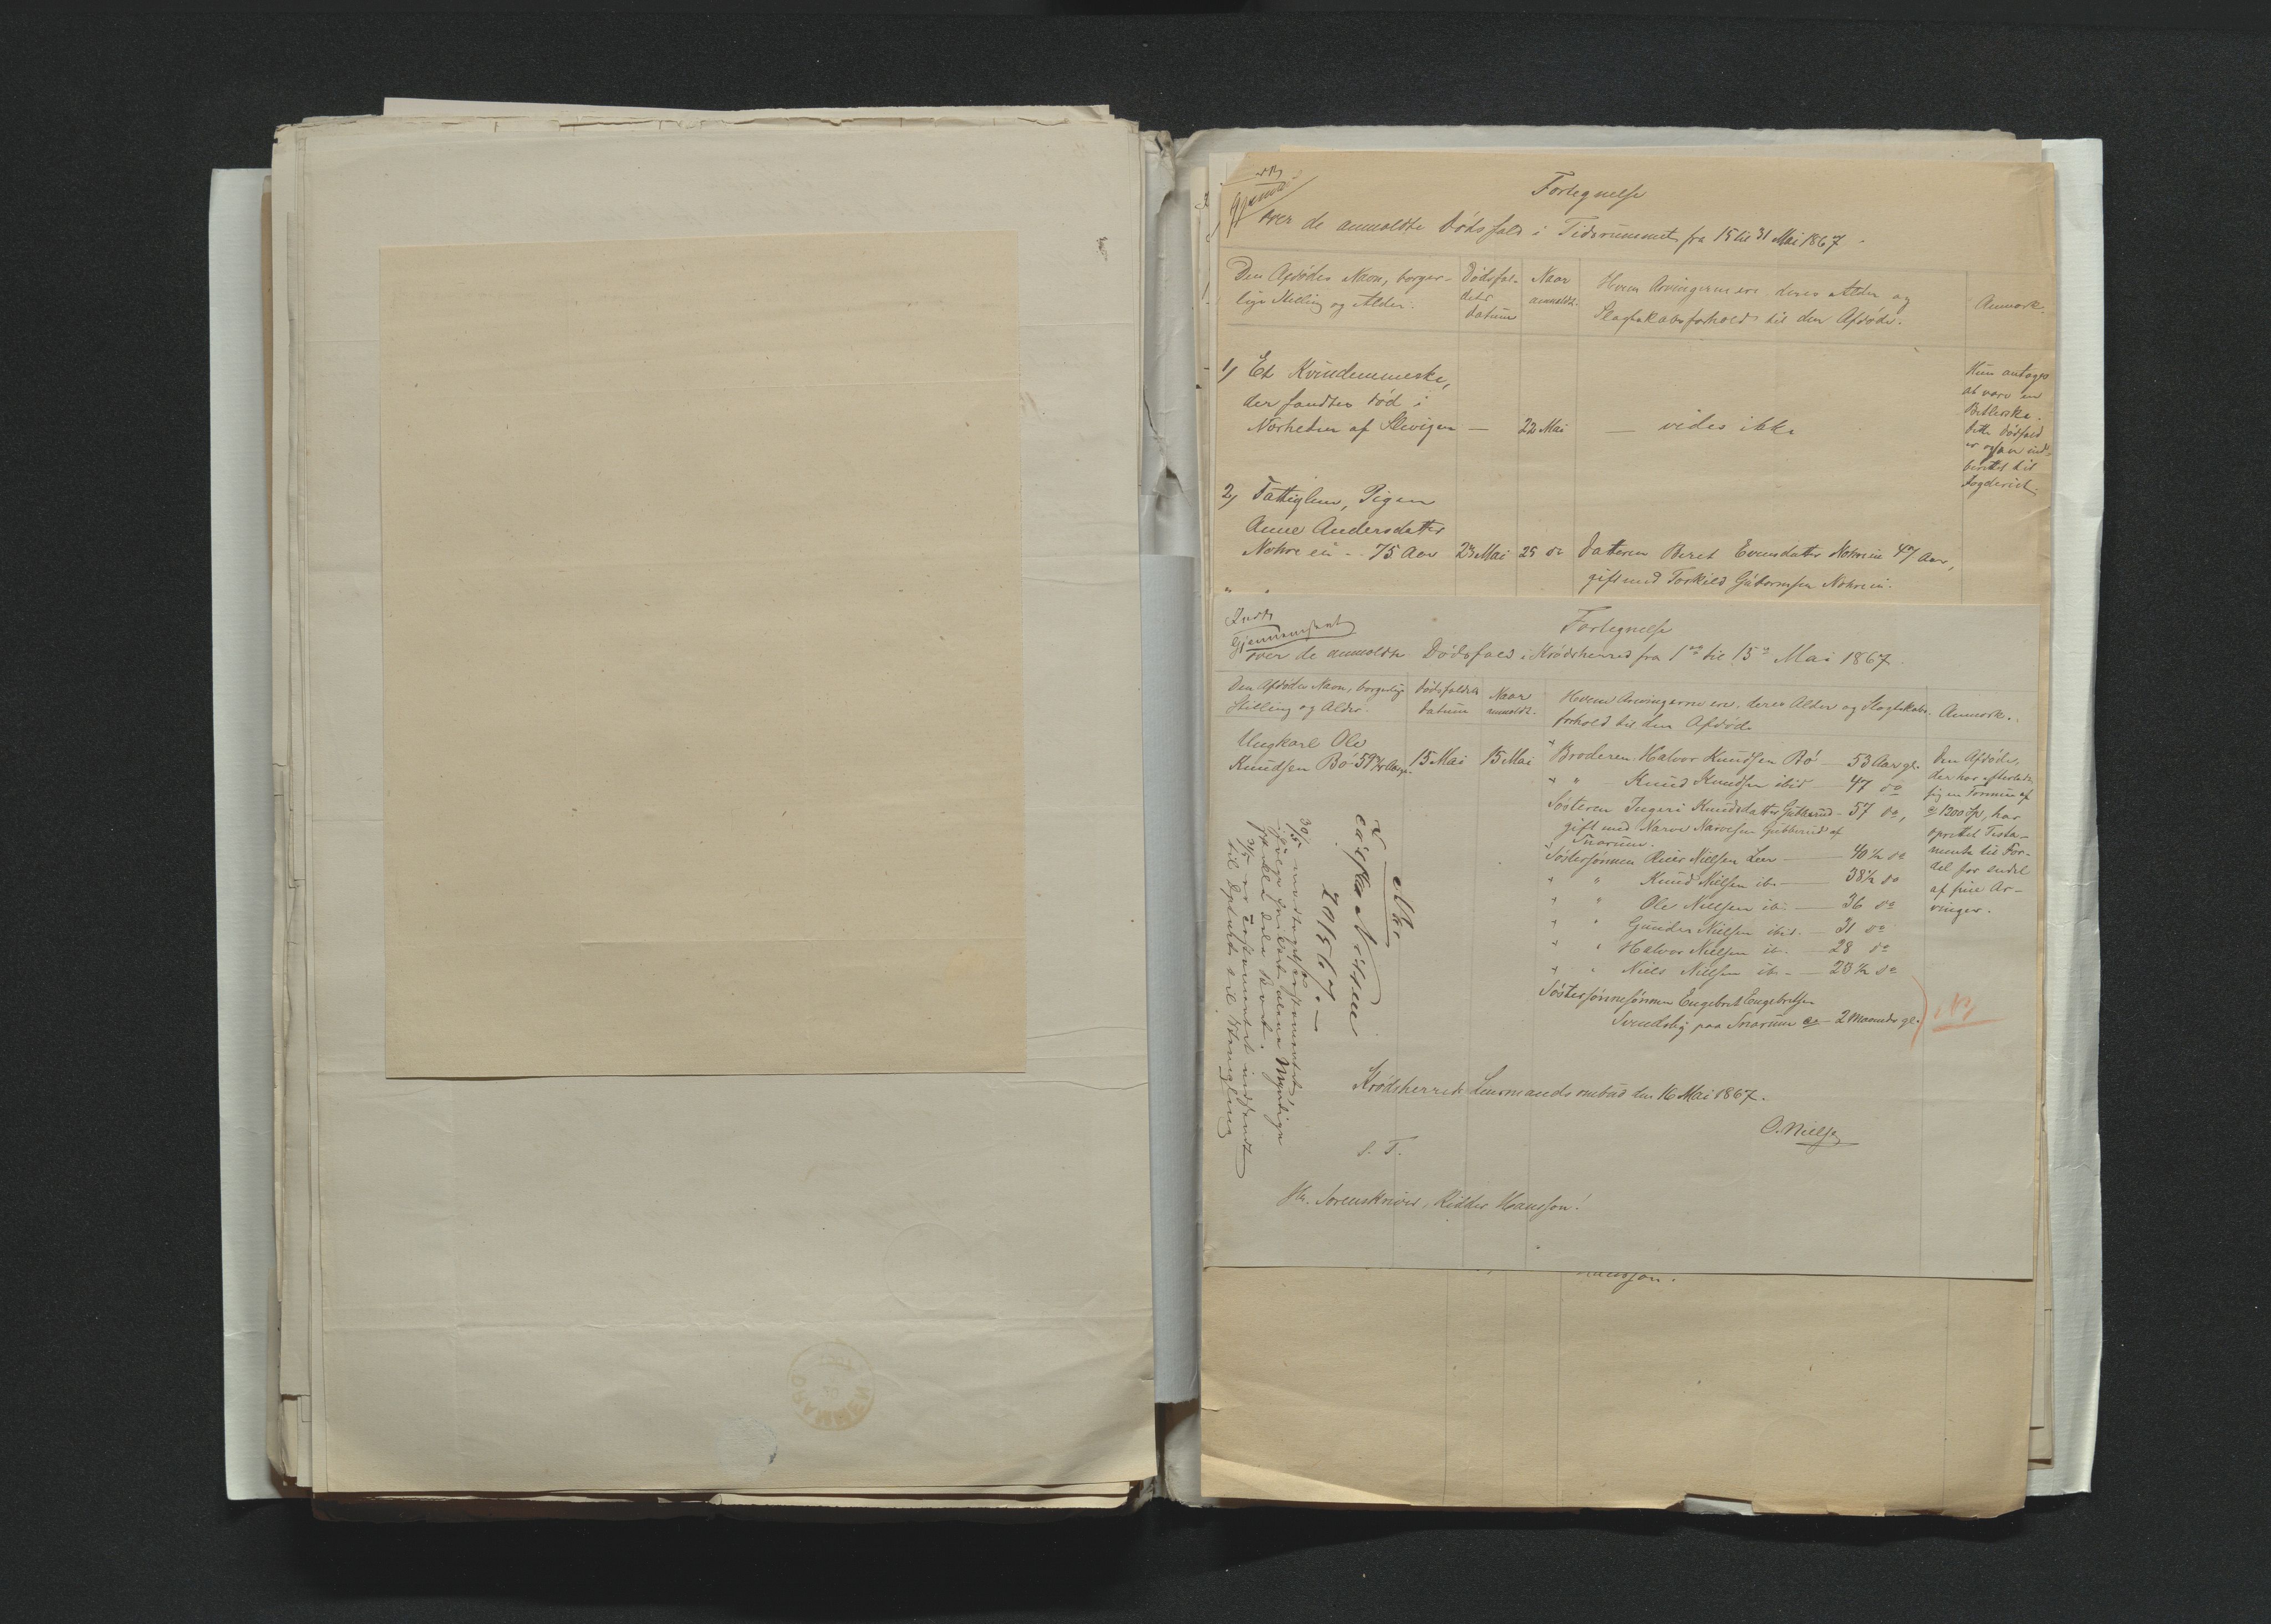 Fortegnelse
over de anmeldte Dödsfald i Tidsrummet fra 15 til 31 Mai 1867.
Den Afdödes Navn, borger-
lige Stilling og Alder.
Dödsfal-
dets
Datum
Naar
anmeldt.
Hvem Arvingerne ere, deres Alder og
Slægtskabsforhold til den Afdöde.
Anmærk.
1) Et Kvindemenneske,
der fandtes död i
Nærheden af — 22 Mai — vides ikke
Hun antages
at være en
Betlerske.
Dette Dödsfald
er ogsaa ind-
berettet til
Fogderiet.
2) Fattiglem, Pigen
Anne Andersdatter
75 Aar 23 Mai 25 do Datteren Beret Evensdatter 47 Aar,
gift med Torkild Guttormsen
Gjennemseet
Fortegnelse
over de anmeldte Dödsfald i Krödsherred fra 1ste til 15de Mai 1867.
Den Afdödes Navn, borgerlige
Stilling og Alder.
Dödsfaldets
Datum
Naar
anmeldt.
Hvem Arvingerne ere, deres Alder og Slægtskabs-
forhold til den Afdöde
Anmærk.
Ungkarl Ole
Knudsen Bö 15 Mai 15 Mai
Broderen Halvor Knudsen Bö — 53 Aar gl.
" Knud Knudsen ibid — 47 do
Sösteren Ingeri Knudsdatter Gubberud — 57 do,
gift med Narve Narvesen Gubberud af
Snarum.
Söstersönnen Nielsen Lien — 40 1/2 do
" Knud Nielsen ib. — 38 1/2 do
" Ole Nielsen ib. — 36 do
" Gunder Nielsen ibid. — 31 do
" Halvor Nielsen ib. — 28 do
" Niels Nielsen ib. — 23 1/2 do
Söstersönnesönnen Engebret Engebretsen
paa Snarum ca 2 Maaneder gl.
Den Afdöde,
der har efterladt
sig en Formue af
ca 1200 Spd, har
oprettet Testa-
mente til For-
del for endel
af sine Ar-
vinger.
30/5 modtaget Testamentet
ifölge hvilket alene Myndige
skulle dele Boet.
31/5 er Testamentet indsendt
Krödsherreds Lensmandsombud den 16 Mai 1867.
O. Nielsen
S. T.
Hr. Sorenskriver, Ridder Hansson!
DRAMMEN